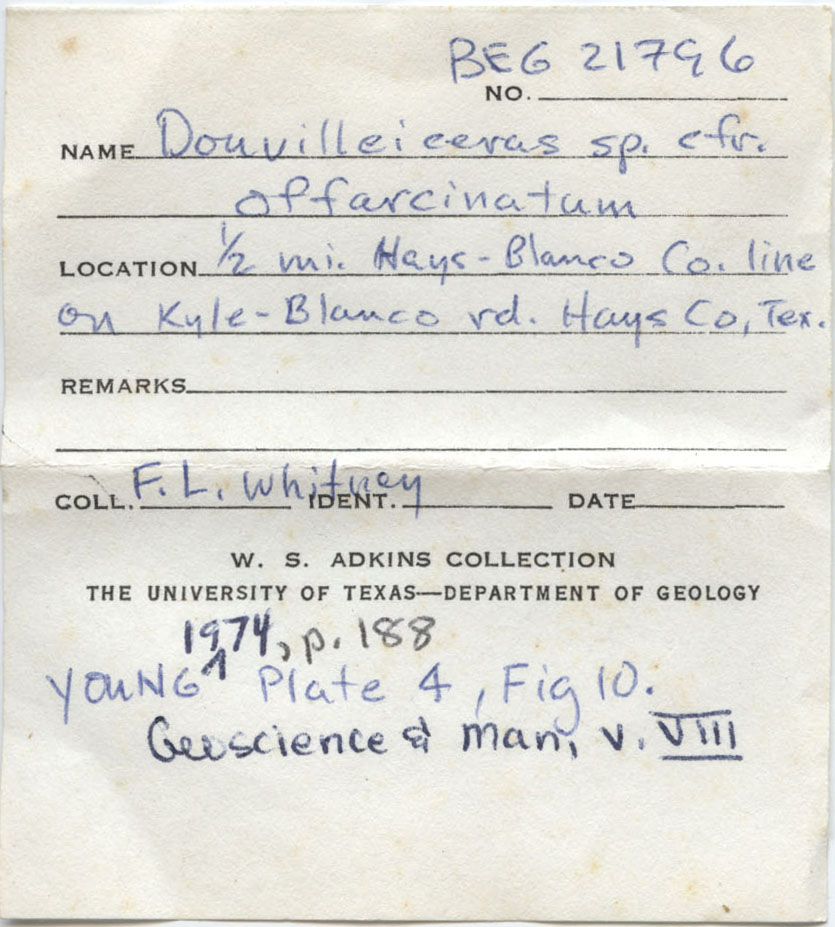 BEG 21796
NO.
NAME Douvilleiceras sp. cfr.
offarcinatum
LOCATION 1/2 mi. Hays-Blanco Co. line
on Kyle-Blanco rd. Hays Co, Tex.
REMARKS
COLL. F. L. Whitney IDENT. DATE
W. S. ADKINS COLLECTION
THE UNIVERSITY OF TEXAS—DEPARTMENT OF GEOLOGY
1974, p. 188
YOUNG ^ Plate 4, Fig 10.
Geoscience & Man, v. VIII